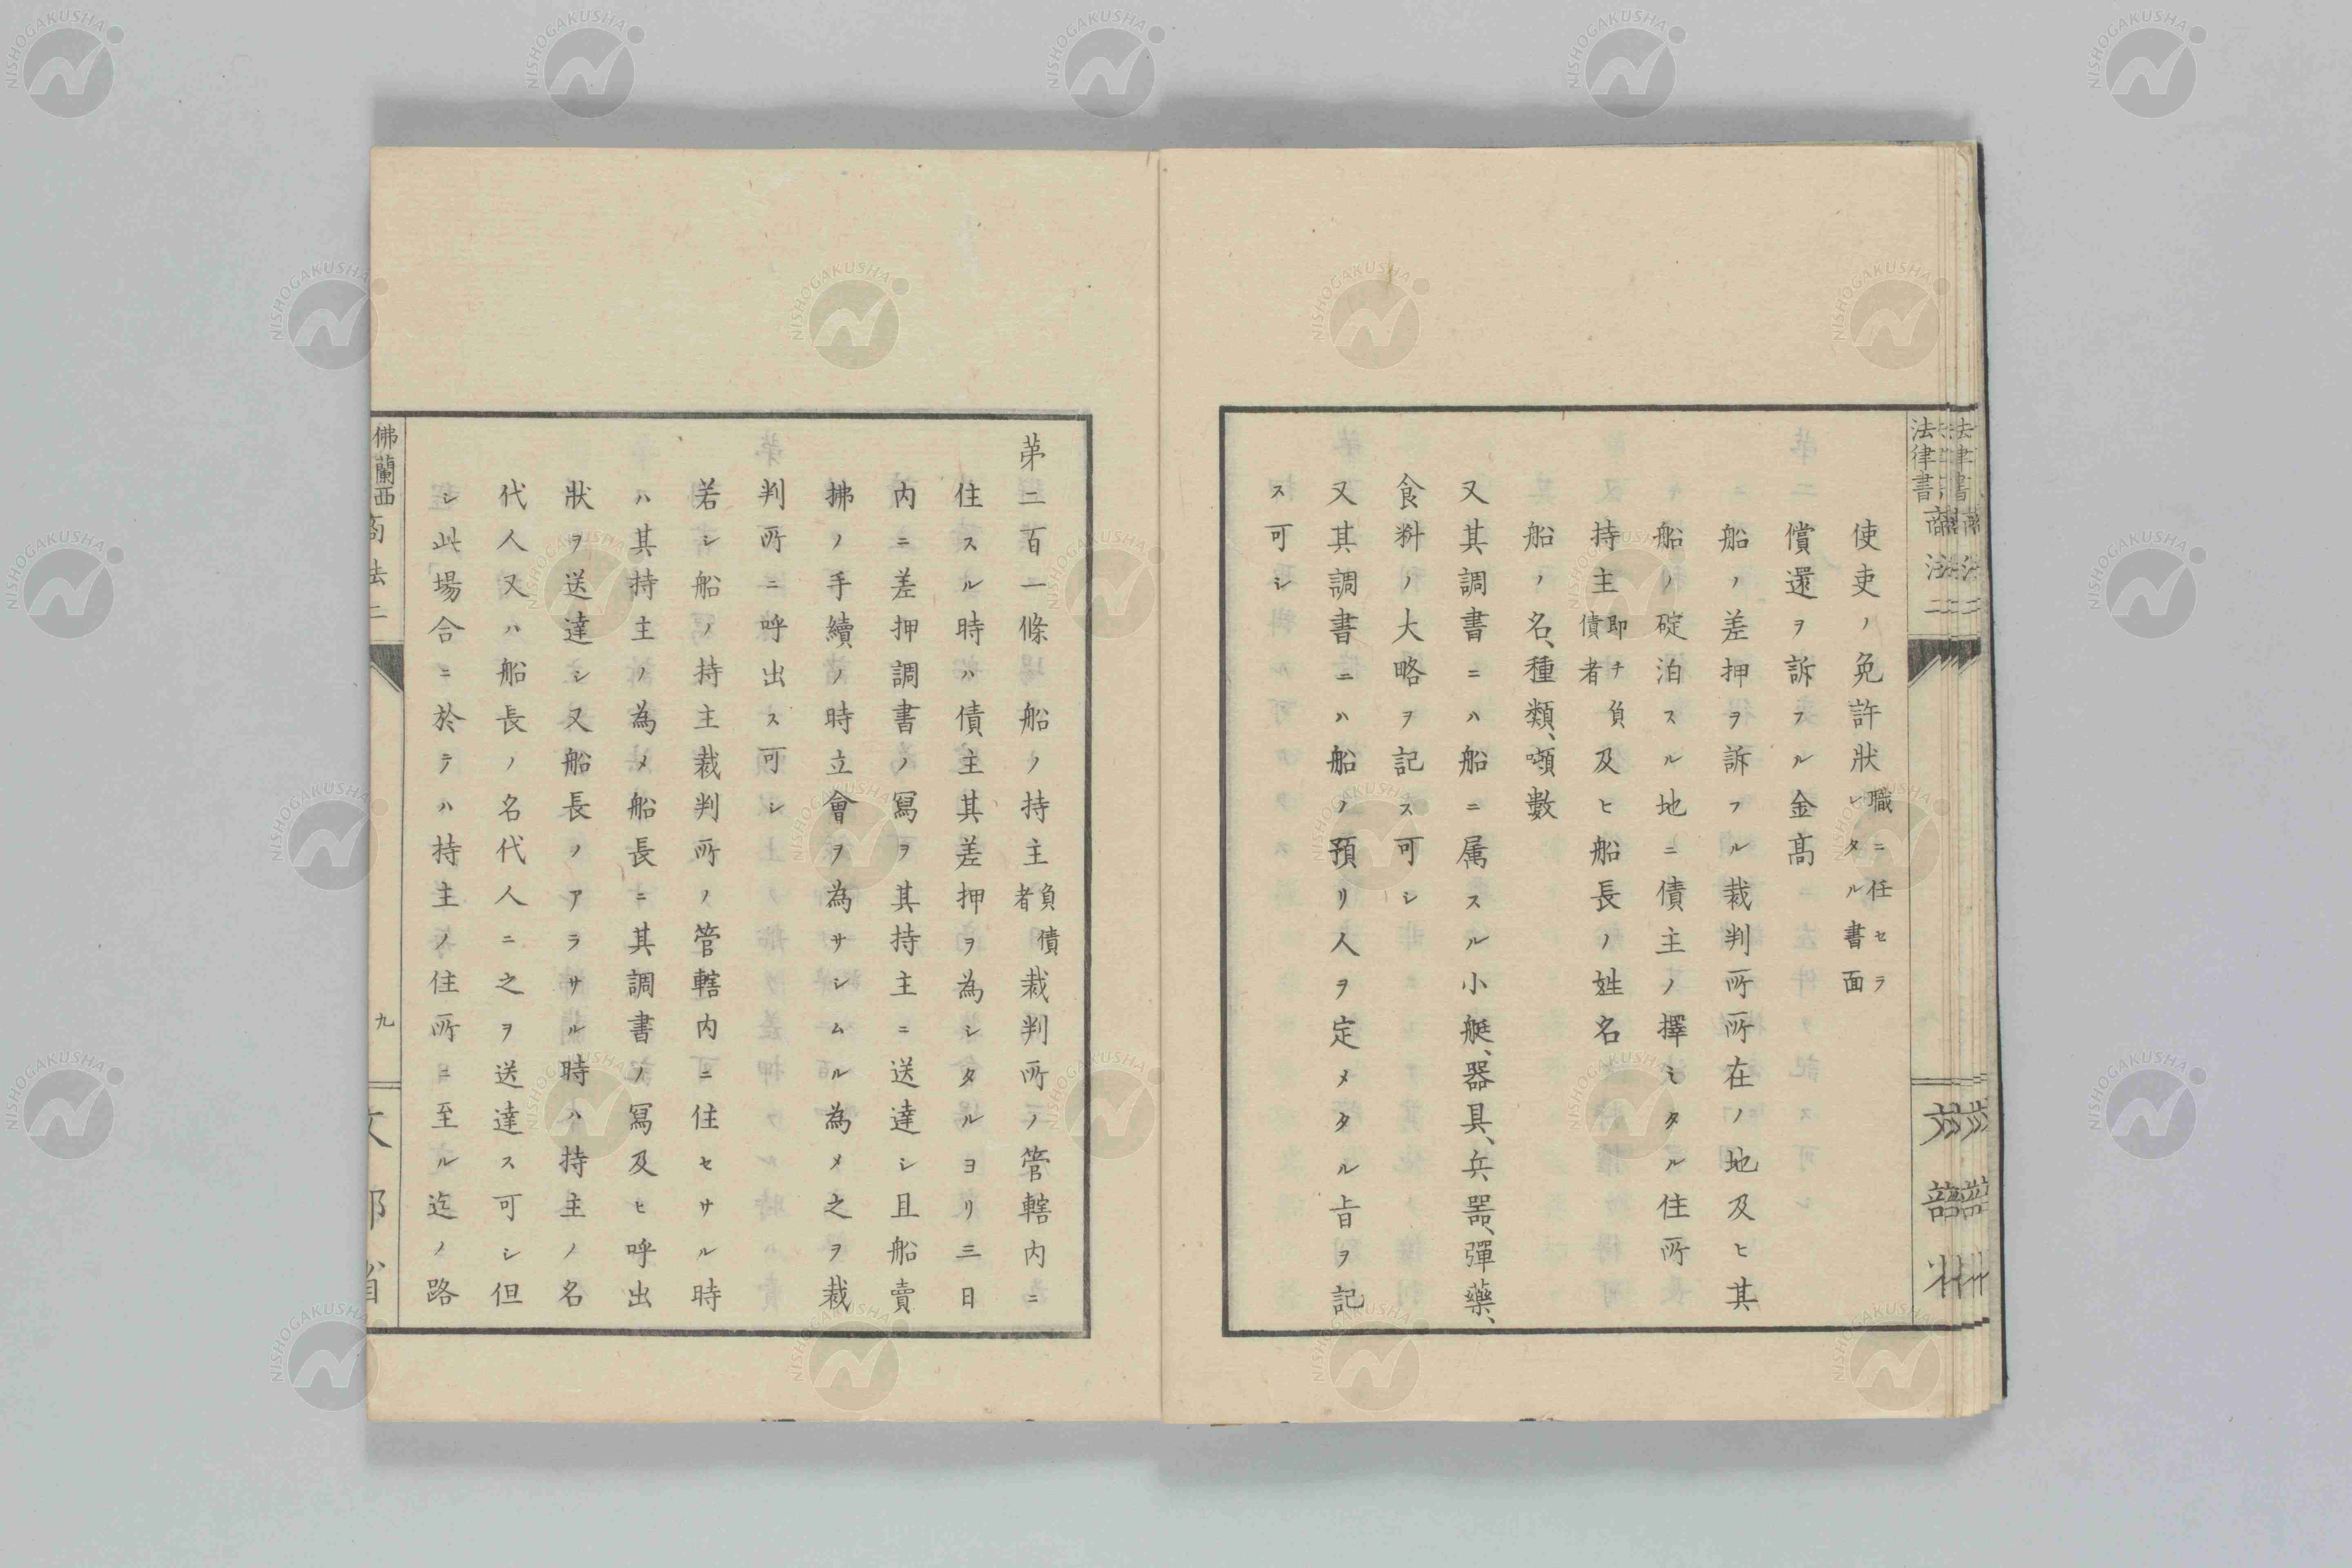 使吏ノ免許狀職ニ任セラレタル書面
償還ヲ訴フル金高
船ノ差押ヲ訴フル裁判所所在ノ地及ヒ其
船ノ碇泊スル地ニ債主ノ擇ミタル住所
持主即チ負債者及ヒ船長ノ姓名
船ノ名、種類、噸數
又其調書ニハ船ニ属スル小艇、器具、兵器、彈藥、
食料ノ大略ヲ記ス可シ
又其調書ニハ船ノ預リ人ヲ定メタル旨ヲ記
ス可シ
法律書
商法二
第二百一條船ノ持主負債者裁判所ノ管轄内ニ
住スル時ハ債主其差押ヲ為シタルヨリ三日
内ニ差押調書ノ寫ヲ其持主ニ送達シ且船賣
拂ノ手續ノ時立會ヲ為サシムル為メ之ヲ裁
判所ニ呼出ス可シ
若シ船ノ持主裁判所ノ管轄内ニ住セサル時
ハ其持主ノ為メ船長ニ其調書ノ寫及ヒ呼出
狀ヲ送達シ又船長ノアラサル時ハ持主ノ名
代人又ハ船長ノ名代人ニ之ヲ送達ス可シ但
シ此場合ニ於テハ持主ノ住所ニ至ル迄ノ路
佛蘭西商法二
九
文部省
NISHOGAKUSHA